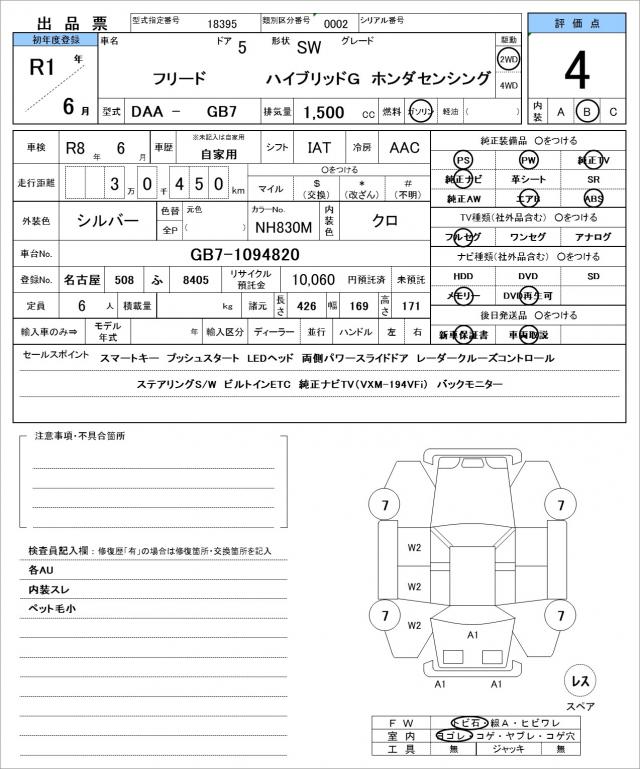 出品票 型式指定番号 18395 類別区分番号 0002 シリアル番号 評価点
初年度登録 車名 ドア 5 形状 SW グレード 駆動
R1 年 フリード ハイブリッドG ホンダセンシング 2WD 4WD 4
6 月 型式 DAA － GB7 排気量 1,500 cc 燃料 ガソリン 軽油 ( ) 内装 A B C
車検 R8 年 6 月 車歴 ※未記入は自家用 自家用 シフト IAT 冷房 AAC
走行距離 3 万 0 千 4 5 0 km 〇をつける マイル $ (交換) * (改ざん) # (不明)
外装色 シルバー 色替 全P 元色 ( ) カラーNo. NH830M 内装色 クロ
車台No. GB7-1094820
登録No. 名古屋 508 ふ 8405 リサイクル預託金 10,060 円預託済 未預託
定員 6 人 積載量 kg 諸元 長さ 426 幅 169 高さ 171
輸入車のみ⇒ モデル年式 年 輸入区分 ディーラー 並行 ハンドル 左 右
純正装備品 〇をつける
PS PW 純正TV
純正ナビ 革シート SR
純正AW エアB ABS
TV種類(社外品含む) 〇をつける
フルセグ ワンセグ アナログ
ナビ種類(社外品含む) 〇をつける
HDD DVD SD
メモリー DVD再生可
後日発送品 〇をつける
新車保証書 車両取説
セールスポイント スマートキー プッシュスタート LEDヘッド 両側パワースライドドア レーダークルーズコントロール
ステアリングS/W ビルトインETC 純正ナビTV(VXM-194VFi) バックモニター
注意事項・不具合箇所
検査員記入欄：修復歴「有」の場合は修復箇所・交換箇所を記入
各AU
内装スレ
ペット毛小
7 7
W2
W2
W2
7 7
A1
A1 A1
レス
スペア
FW トビ石・線A・ヒビワレ
室内 ヨゴレ・コゲ・ヤブレ・コゲ穴
工具 無 ジャッキ 無